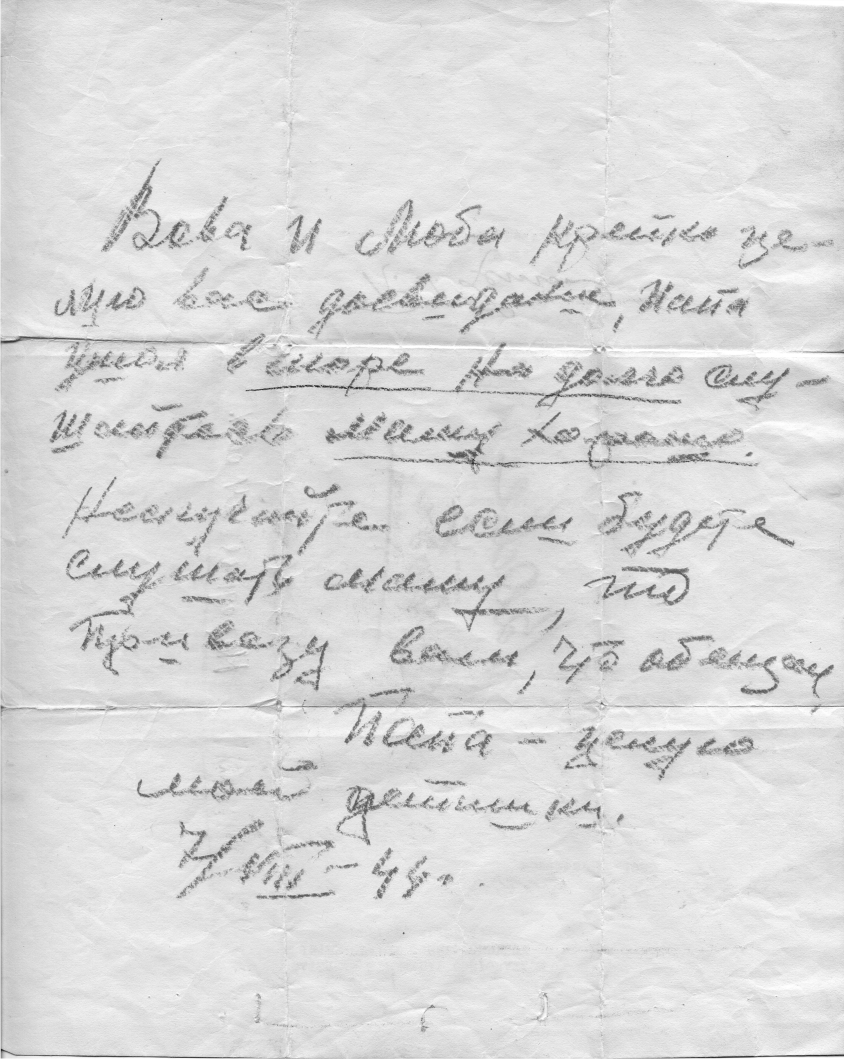 Вова и Люба крепко це-
лую вас досвидания, Папа
ушол в море на долго слу-
шайтесь маму хорошо.
Нескучайте если будете
слушать маму, то
Привезу вам, что обещал,
Папа – целую
моей детишки.
7/VIII – 44г.